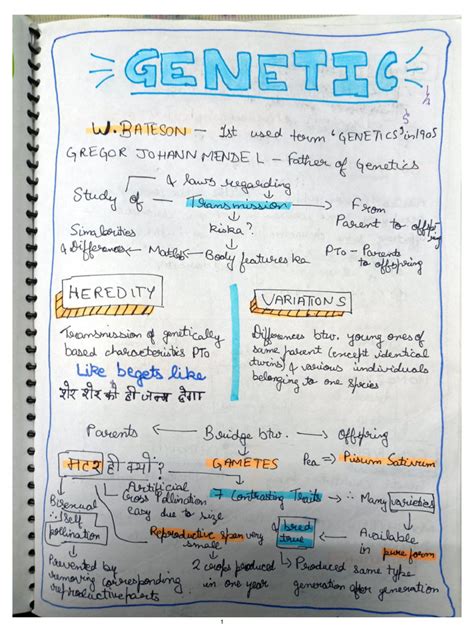 GENETIC
W. BATESON - Ist used term 'GENETICS' in 1905
GREGOR JOHANN MENDEL - Father of Genetics
& laws regarding
Study of - Transmission → From
Parent to offspring
kiska?
Similarities
& Differences ← Matlab ← Body features ka
PTO - Parents
to offspring
HEREDITY
Transmission of genetically
based characteristics PTO
Like begets like
शेर शेर को ही जन्म देगा
VARIATIONS
Differences btw. young ones of
same parent (except identical
twins) & various individuals
belonging to one species
Parents ← Bridge btw. → Offspring
GAMETES
Pea => Pisum Sativum
मटर ही क्यों?
Bisexual
∴ Self
pollination
Prevented by
removing corresponding
reproductive parts
Artificial
Cross Pollination
easy due to size
7 Contrasting Traits → ∴ Many varieties
Reproductive span very
small
2 crops produced
in one year
& bred
true
Available
in pure form
Produced same type
generation after generation
1